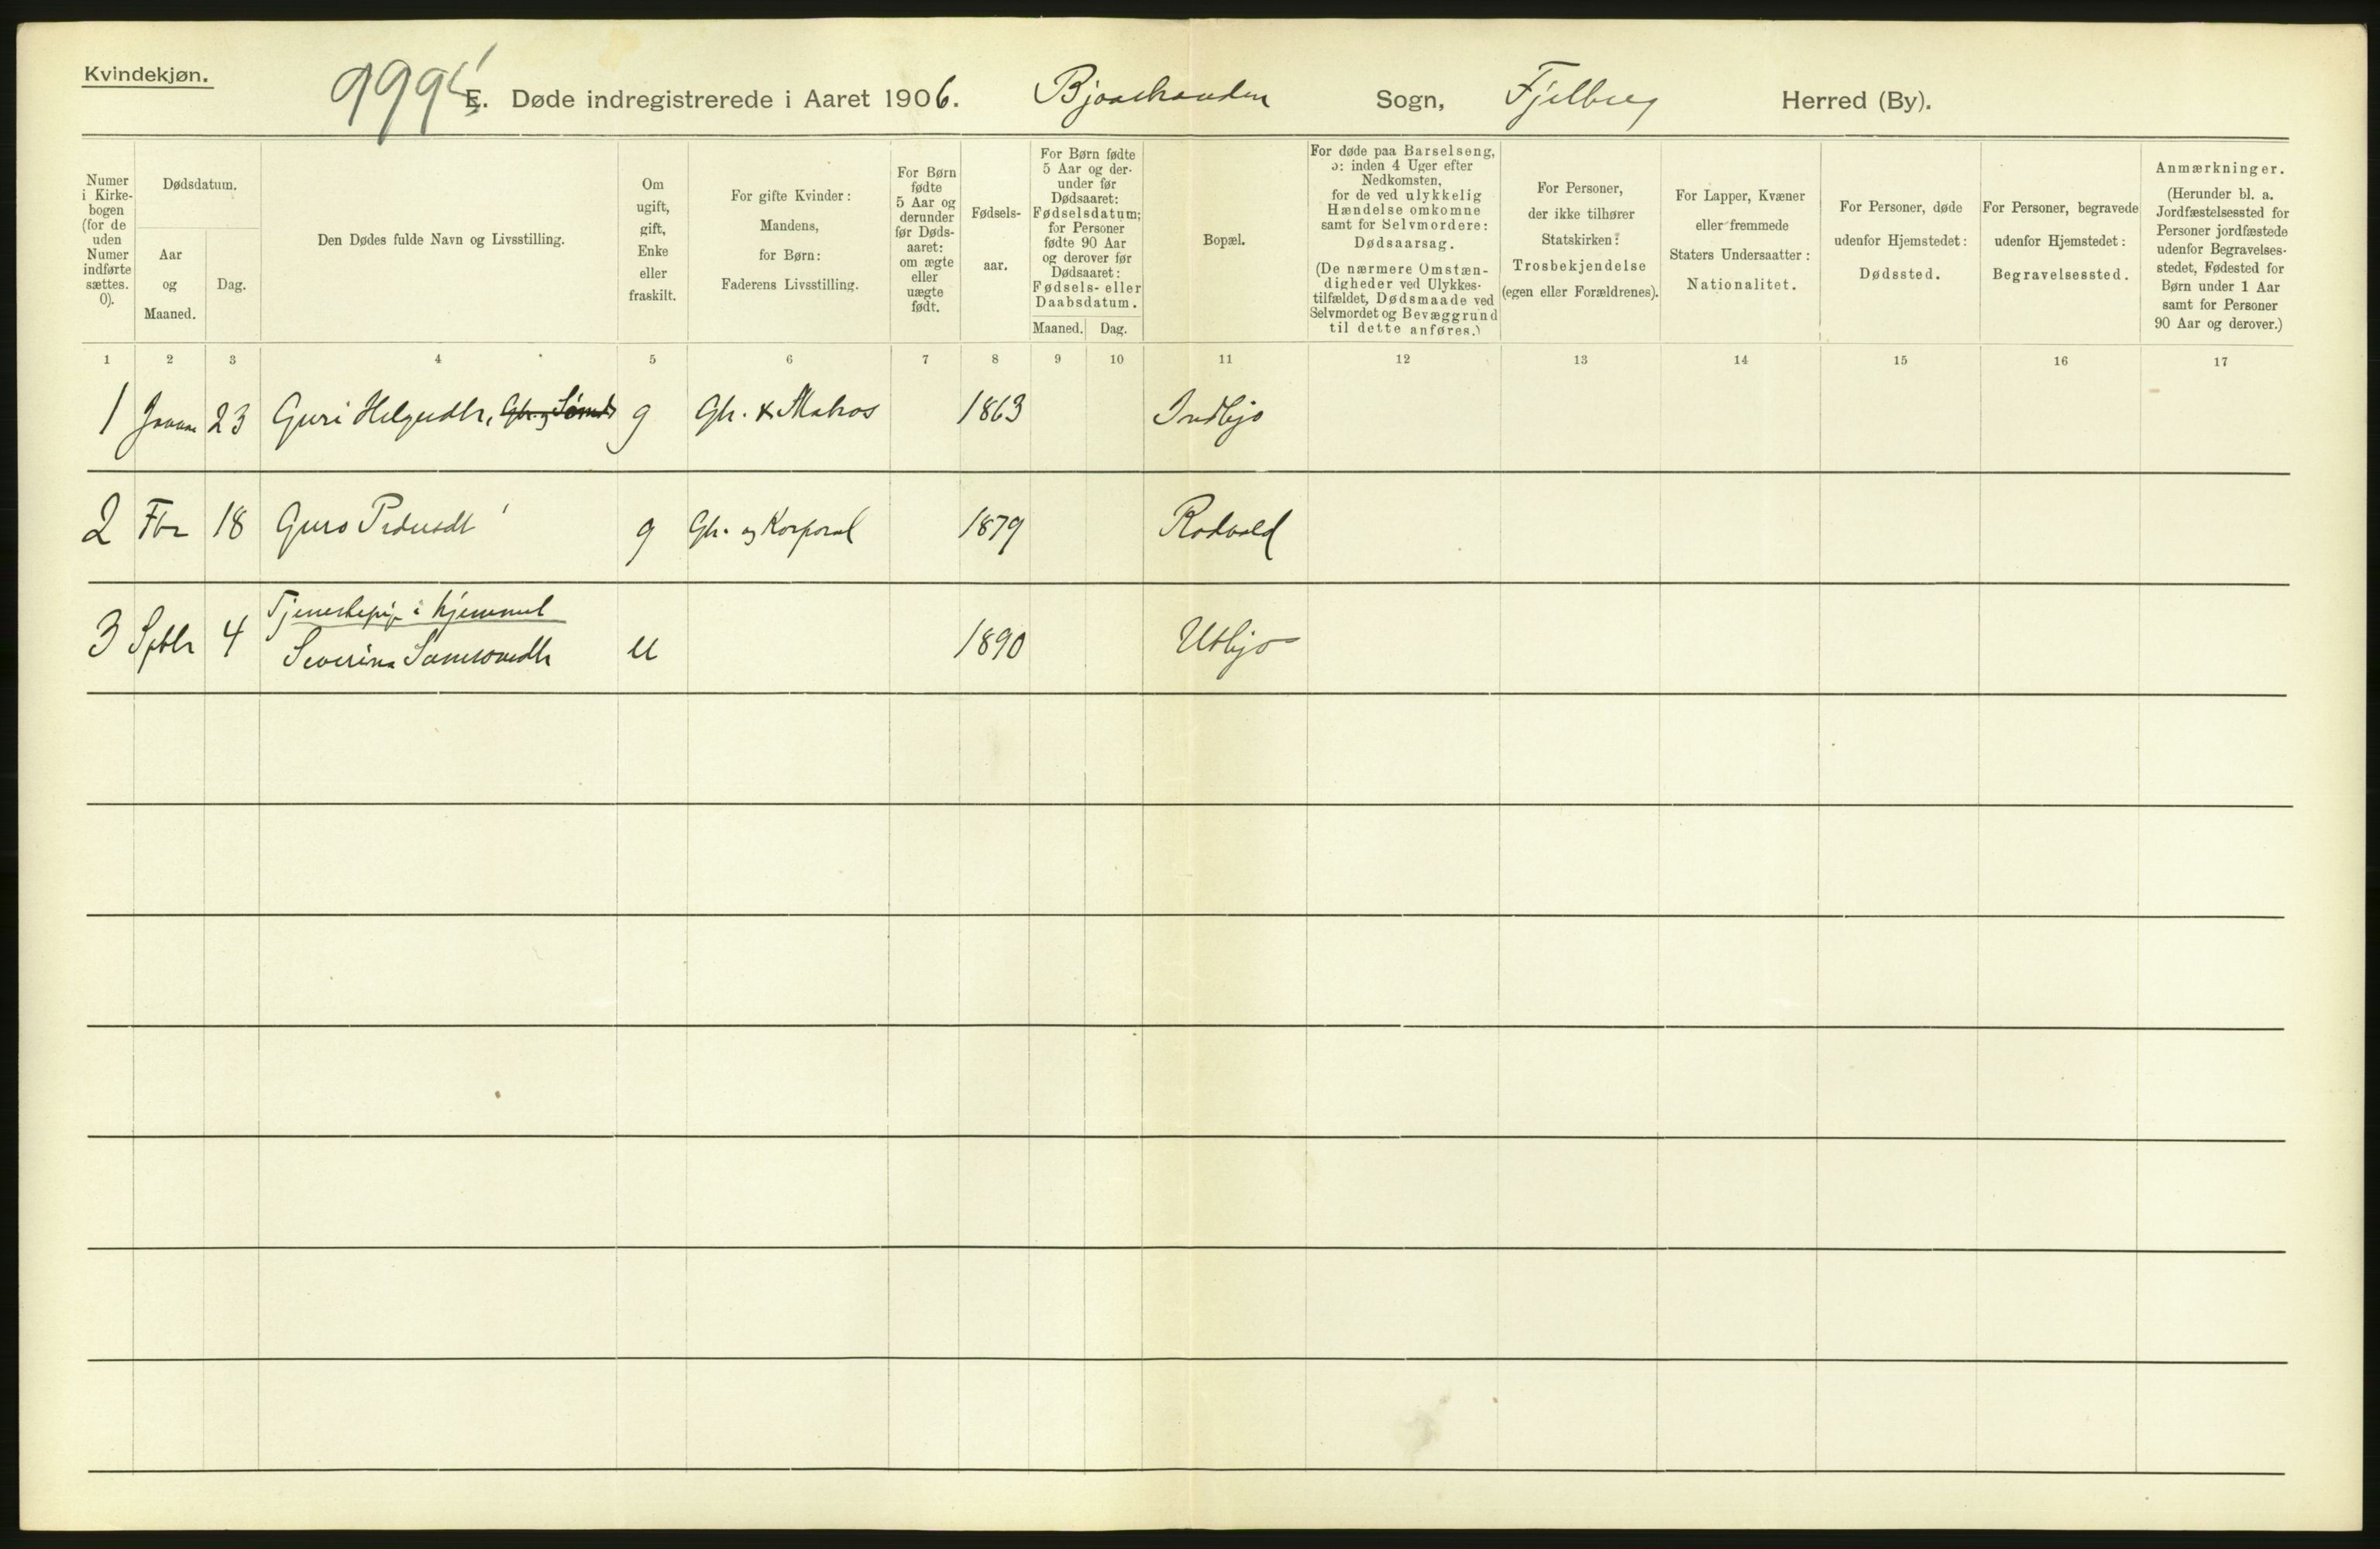 Kvindekjøn.
E. Døde indregistrerede i Aaret 1906. Sogn, Fjelberg Herred (By).
Numer i Kirke-bogen (for de uden Numer indførte sættes. 0).
Dødsdatum.
Aar og Maaned.
Dag.
Den Dødes fulde Navn og Livsstilling.
Om ugift, gift, Enke eller fraskilt.
For gifte Kvinder: Mandens, for Børn: Faderens Livsstilling.
For Børn fødte 5 Aar og derunder før Døds-aaret: om ægte eller uægte født.
Fødsels-aar.
For Børn fødte 5 Aar og der-under før Dødsaaret: Fødselsdatum; for Personer fødte 90 Aar og derover før Dødsaaret: Fødsels- eller Daabsdatum.
Maaned. Dag.
Bopæl.
For døde paa Barselseng, ɔ: inden 4 Uger efter Nedkomsten, for de ved ulykkelig Hændelse omkomne samt for Selvmordere: Dødsaarsag.
(De nærmere Omstæn-digheder ved Ulykkes-tilfældet, Dødsmaade ved Selvmordet og Bevæggrund til dette anføres.)
For Personer, der ikke tilhører Statskirken: Trosbekjendelse (egen eller Forældrenes).
For Lapper, Kvæner eller fremmede Staters Undersaatter: Nationalitet.
For Personer, døde udenfor Hjemstedet: Dødssted.
For Personer, begravede udenfor Hjemstedet: Begravelsessted.
Anmærkninger.
(Herunder bl. a. Jordfæstelsessted for Personer jordfæstede udenfor Begravelses-stedet, Fødested for Børn under 1 Aar samt for Personer 90 Aar og derover.)
1 2 3 4 5 6 7 8 9 10 11 12 13 14 15 16 17
1 23 Guri Helgesdtr, g Gbr. & Matros 1863 Indbjo
2 Fbr 18 Guro Pedersdt g Gbr. og Korporal 1879 Rødvold
Tjenestepige i hjemmet
3 Sptbr 4 Severina Samsonsdtr u 1890 Utbjo